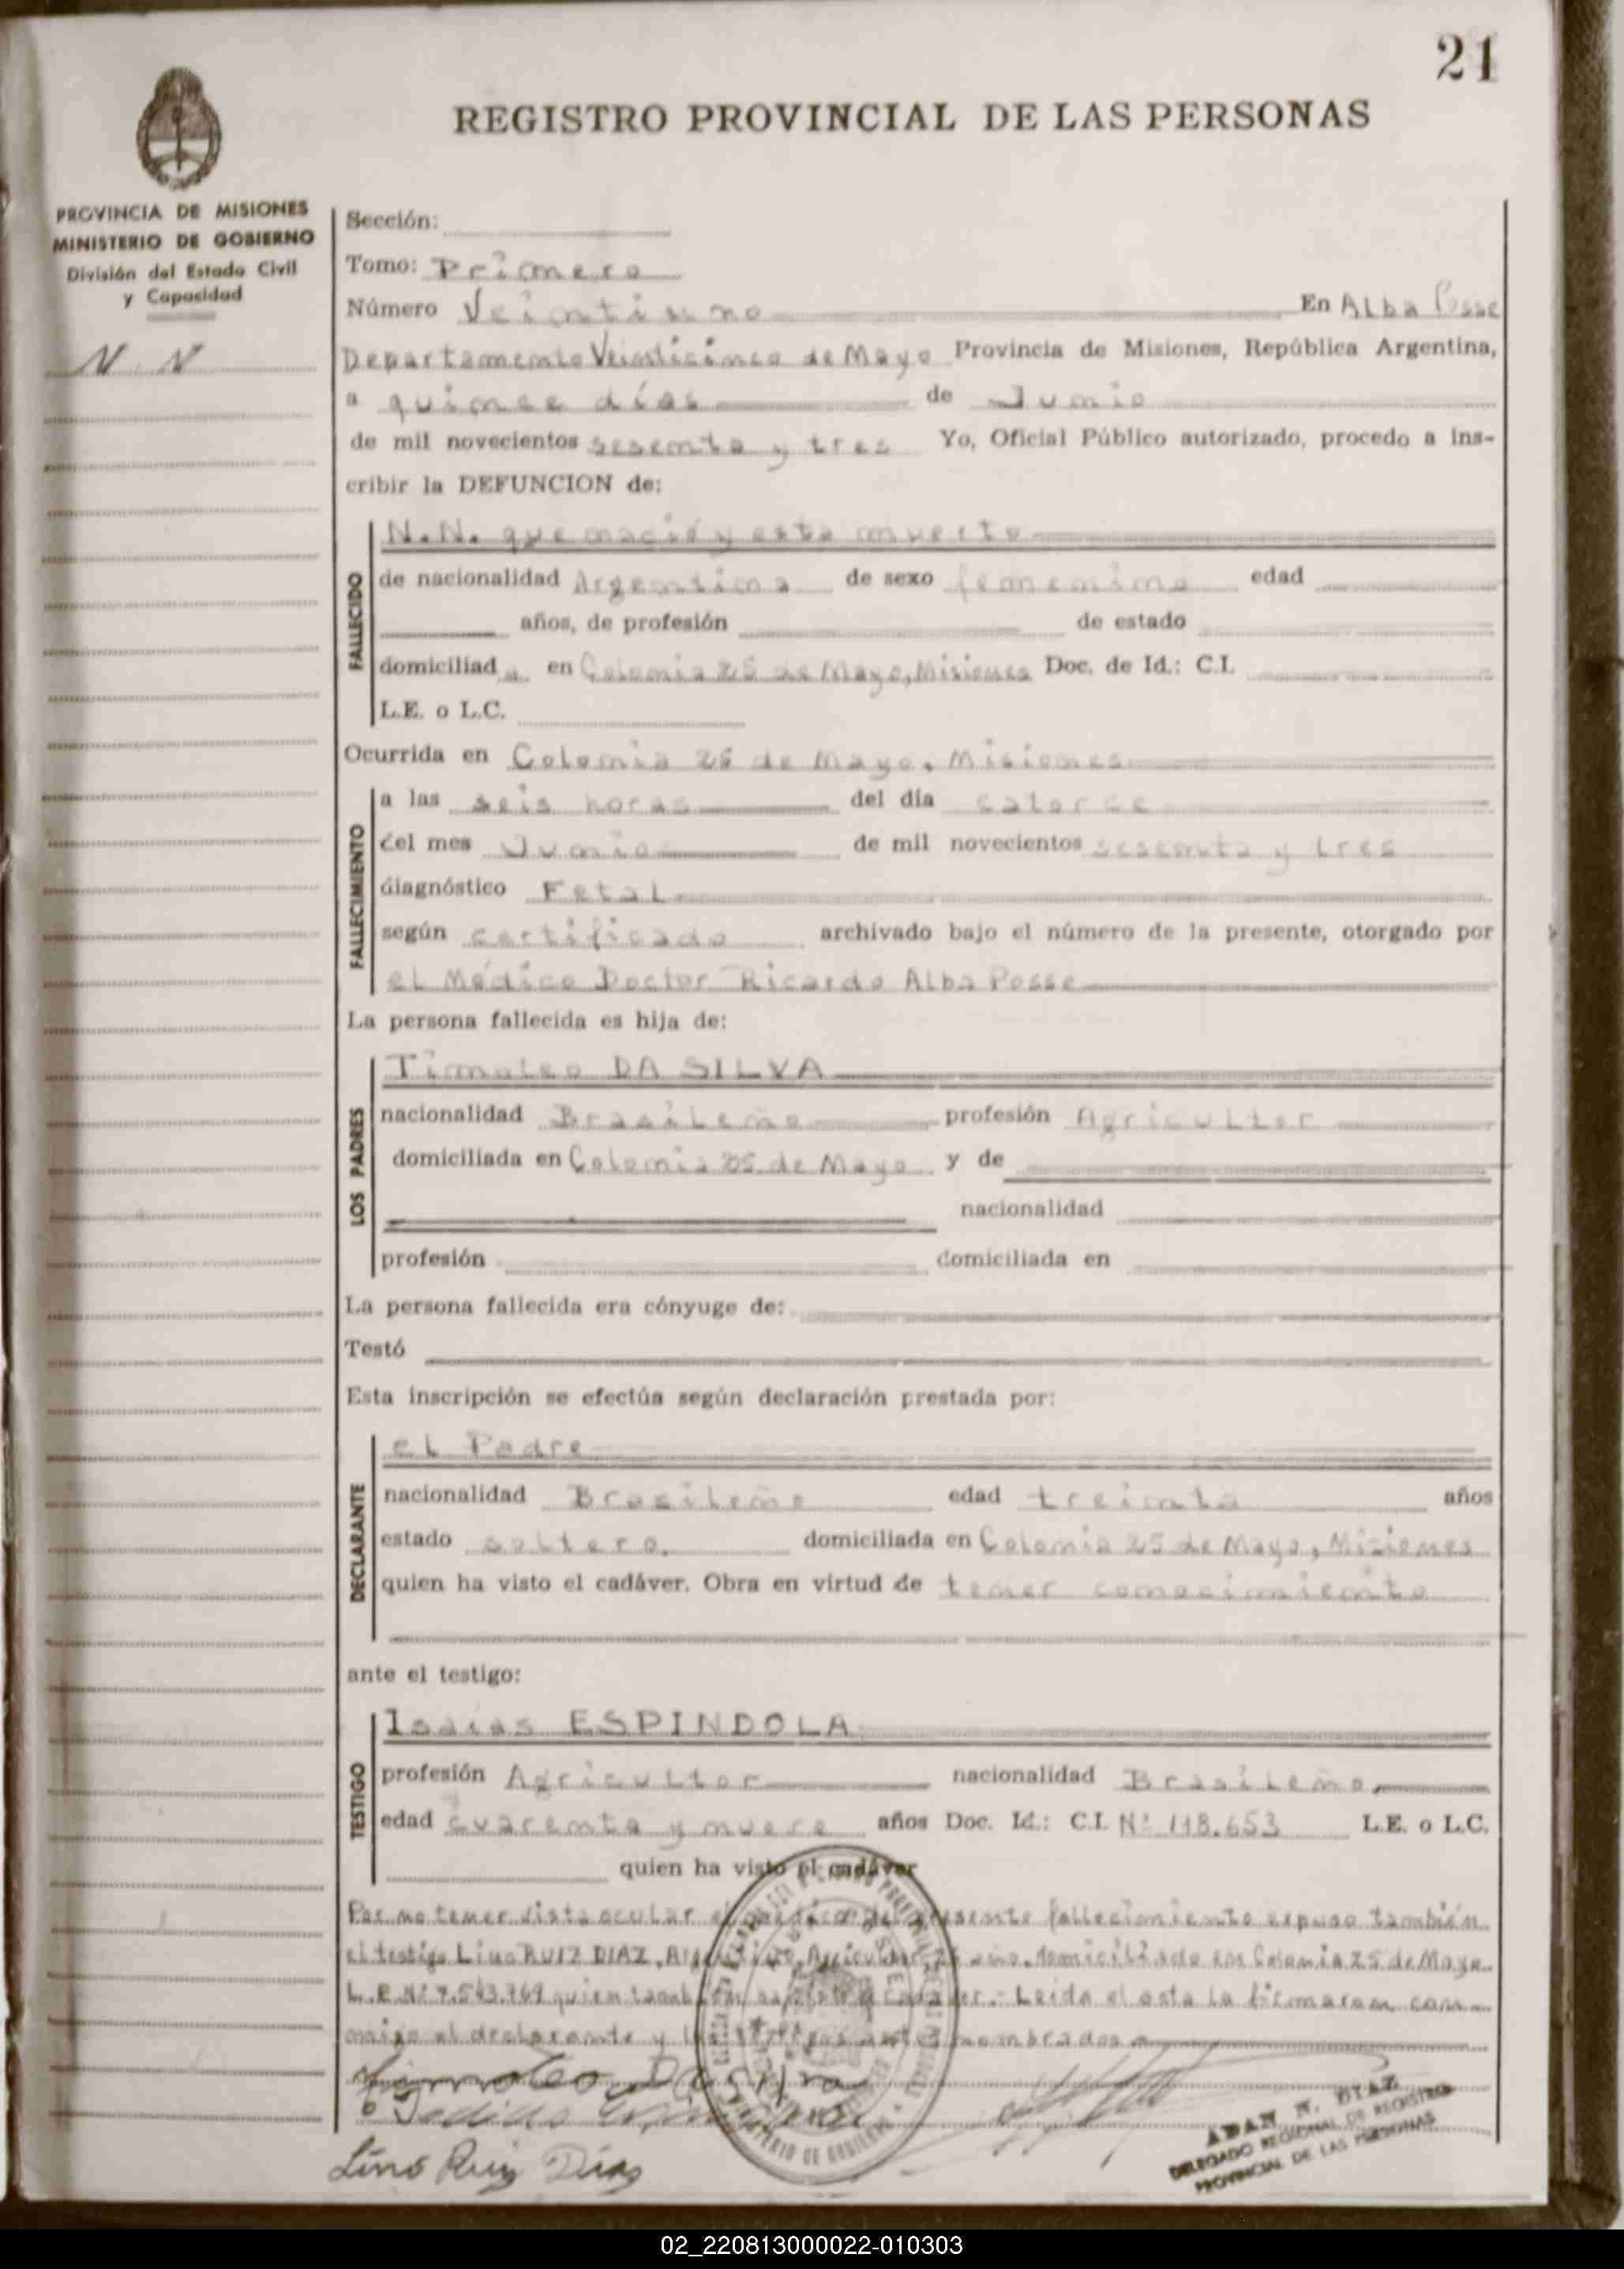 21
REGISTRO PROVINCIAL DE LAS PERSONAS
PROVINCIA DE MISIONES
MINISTERIO DE GOBIERNO
División del Estado Civil
y Capacidad
N. N
Sección:
Tomo: Primero
Número Veintiuno En Alba Posse
Departamento Veinticinco de Mayo Provincia de Misiones, República Argentina,
a quince días de Junio
de mil novecientos sesenta y tres Yo, Oficial Público autorizado, procedo a ins-
cribir la DEFUNCION de:
FALLECIDO
N.N. que nació y esta muerto
de nacionalidad Argentina de sexo femenino edad
años, de profesión de estado
domiciliad a en Colonia 25 de Mayo, Misiones Doc. de Id.: C.I.
L.E. o L.C.
Ocurrida en Colonia 25 de Mayo, Misiones
FALLECIMIENTO
a las seis horas del día catorce
del mes Junio de mil novecientos sesenta y tres
diagnóstico Fetal
según certificado archivado bajo el número de la presente, otorgado por
el Médico Doctor Ricardo Alba Posse
La persona fallecida es hija de:
LOS PADRES
Timoteo DA SILVA
nacionalidad Brasileño profesión Agricultor
domiciliada en Colonia 25 de Mayo y de
nacionalidad
profesión domiciliada en
La persona fallecida era cónyuge de:
Testó
Esta inscripción se efectúa según declaración prestada por:
DECLARANTE
el Padre
nacionalidad Brasileño edad treinta años
estado soltero, domiciliada en Colonia 25 de Mayo, Misiones
quien ha visto el cadáver. Obra en virtud de tener conocimiento
ante el testigo:
TESTIGO
Isaias ESPINDOLA
profesión Agricultor nacionalidad Brasileño,
edad cuarenta y nueve años Doc. Id.: C.I. Nº 118.653 L.E. o L.C.
quien ha visto el cadáver
Por no tener vista ocular el médico del presente fallecimiento expuso también
el testigo Lino RUIZ DIAZ, Argentino, Agricultor, domiciliado en Colonia 25 de Mayo.
L.E. Nº 7.543.769 quien también ha visto el cadaver.- Leida el acta la firmaron con-
migo el declarante y los testigos antes nombrados
Timoteo Da Silva
Isaias Espindola
Lino Ruiz Diaz
ADAN R. DIAZ
DELEGADO REGIONAL DE REGISTRO
PROVINCIAL DE LAS PERSONAS
02_220813000022-010303